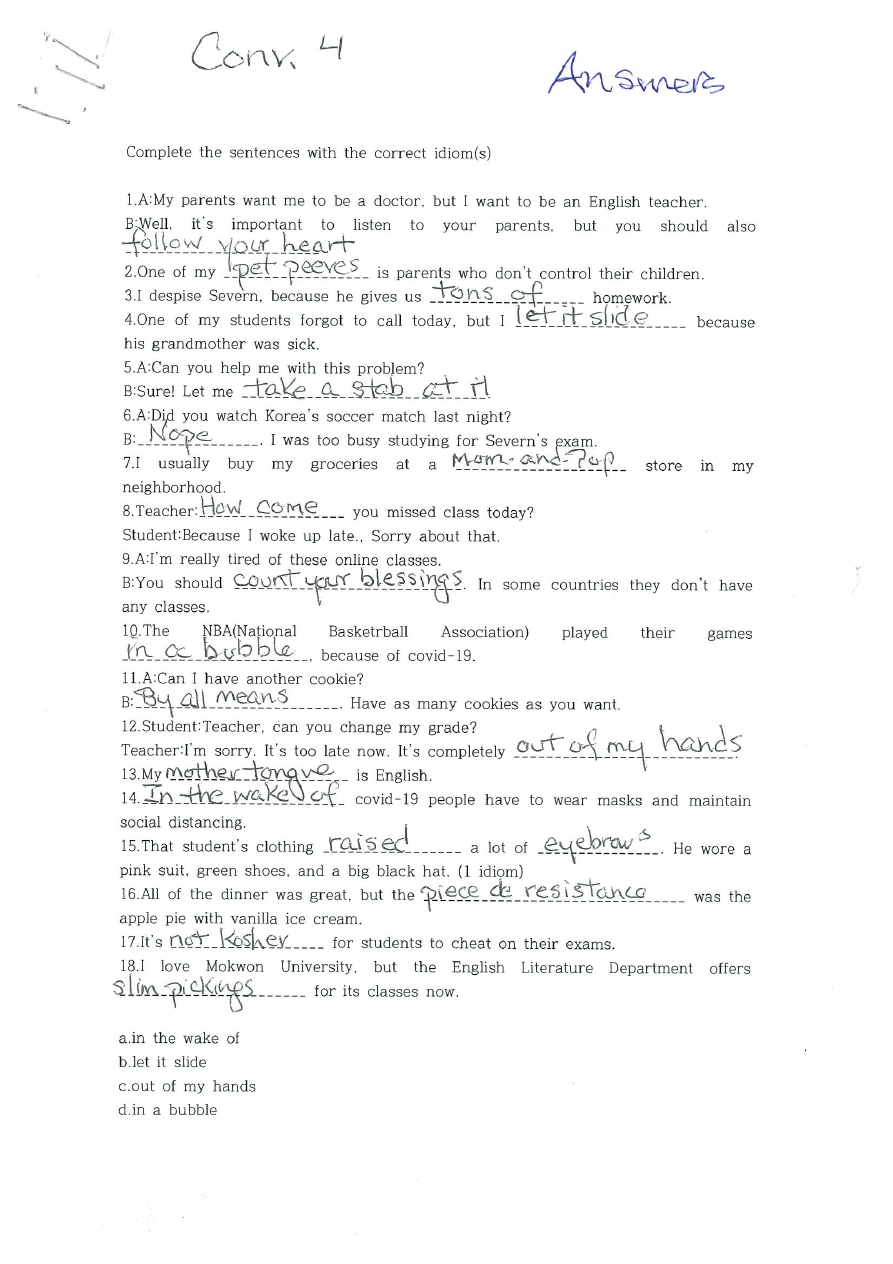 Conv. 4
Answers
Complete the sentences with the correct idiom(s)
1.A:My parents want me to be a doctor, but I want to be an English teacher.
B:Well, it's important to listen to your parents, but you should also
follow your heart
2.One of my pet peeves is parents who don't control their children.
3.I despise Severn, because he gives us tons of homework.
4.One of my students forgot to call today, but I let it slide because
his grandmother was sick.
5.A:Can you help me with this problem?
B:Sure! Let me take a stab at it
6.A:Did you watch Korea's soccer match last night?
B: Nope. I was too busy studying for Severn's exam.
7.I usually buy my groceries at a Mom-and-Pop store in my
neighborhood.
8.Teacher:How come you missed class today?
Student:Because I woke up late., Sorry about that.
9.A:I'm really tired of these online classes.
B:You should count your blessings. In some countries they don't have
any classes.
10.The NBA(National Basketrball Association) played their games
in a bubble, because of covid-19.
11.A:Can I have another cookie?
B:By all means. Have as many cookies as you want.
12.Student:Teacher, can you change my grade?
Teacher:I'm sorry. It's too late now. It's completely out of my hands.
13.My mother tongue is English.
14.In the wake of covid-19 people have to wear masks and maintain
social distancing.
15.That student's clothing raised a lot of eyebrows. He wore a
pink suit, green shoes, and a big black hat. (1 idiom)
16.All of the dinner was great, but the piece de resistance was the
apple pie with vanilla ice cream.
17.It's not kosher for students to cheat on their exams.
18.I love Mokwon University, but the English Literature Department offers
slim pickings for its classes now.
a.in the wake of
b.let it slide
c.out of my hands
d.in a bubble